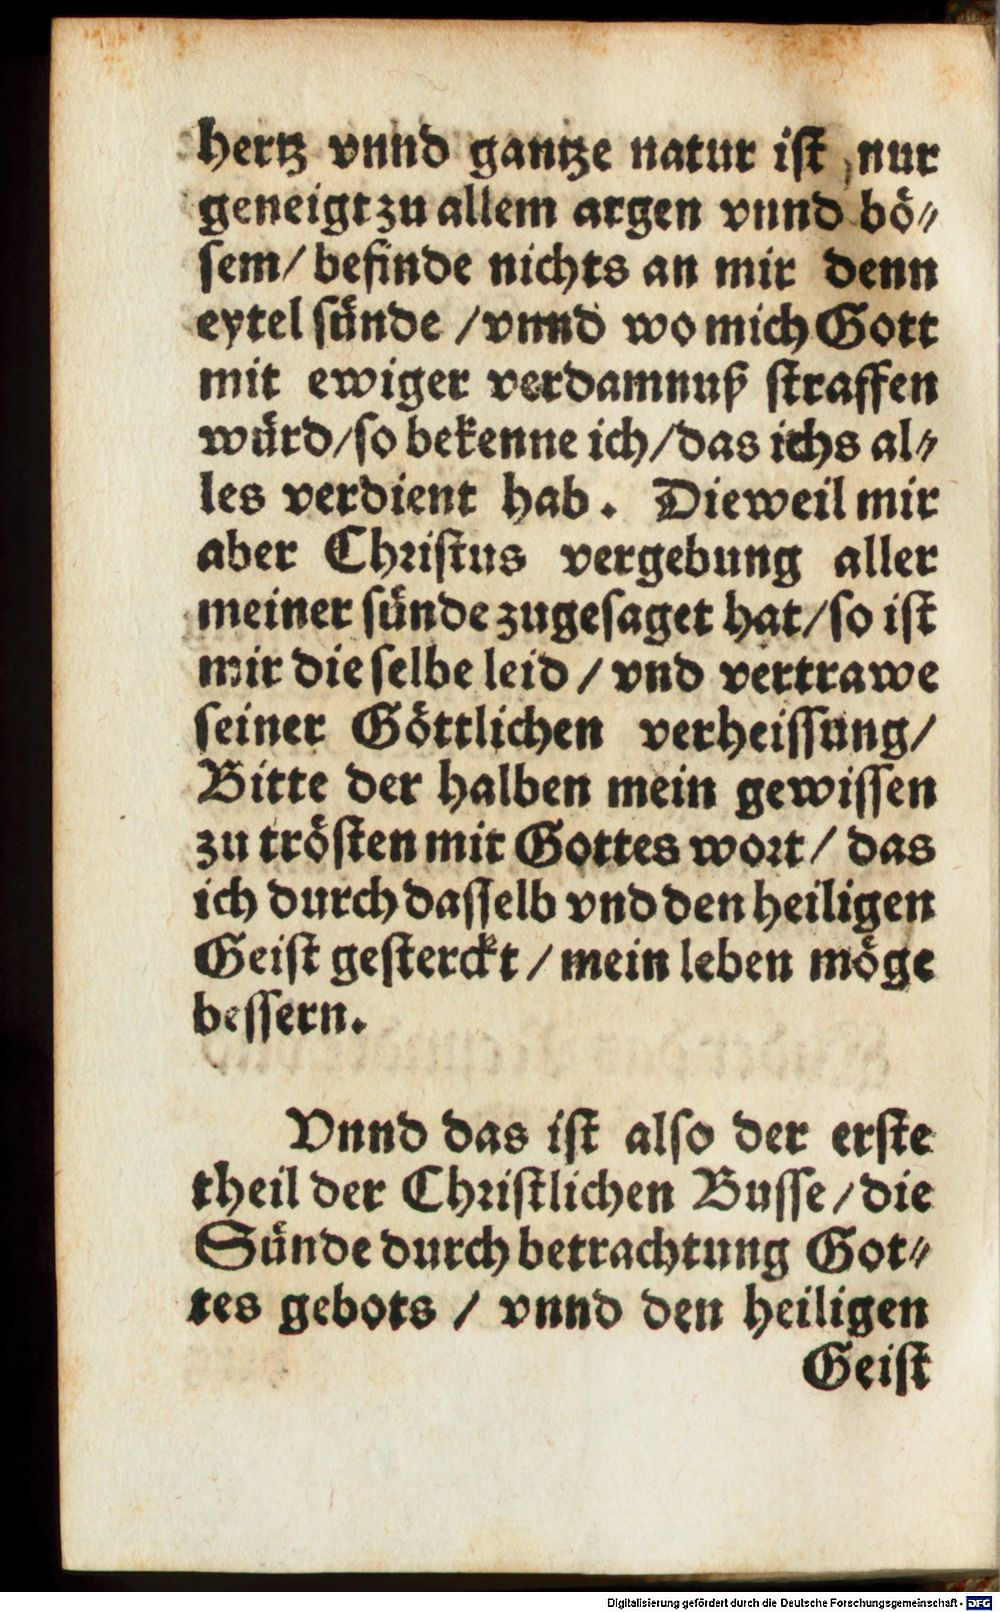 hertz vnnd gantze natur ist nur
geneigt zu allem argen vnnd bö⸗
sem/ befinde nichts an mir denn
eytel sünde /vnnd wo mich Gott
mit ewiger verdamnuß straffen
würd/so bekenne ich/das ichs al⸗
les verdient hab. Dieweil mir
aber Christus vergebung aller
meiner sünde zugesaget hat/so ist
mir die selbe leid / vnd vertrawe
seiner Göttlichen verheissung/
Bitte der halben mein gewissen
zu trösten mit Gottes wort/ das
ich durch dasselb vnd den heiligen
Geist gesterckt /mein leben möge
bessern.
Vnnd das ist also der erste
theil der Christlichen Busse/die
Sünde durch betrachtung Got⸗
tes gebots / vnnd den heiligen
Geist
Digitalisierung gefördert durch die Deutsche Forschungsgemeinschaft - DFG